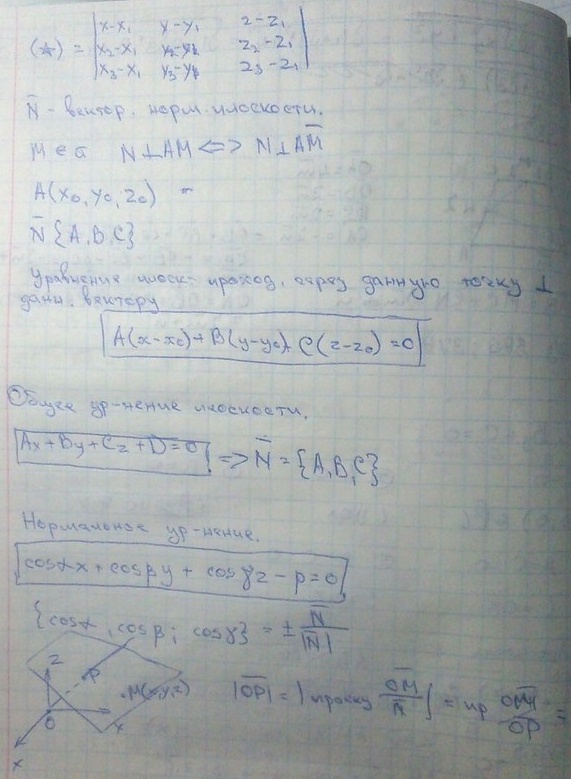 (*) = | x-x₁ y-y₁ z-z₁ |
| x₂-x₁ y₂-y₁ z₂-z₁ |
| x₃-x₁ y₃-y₁ z₃-z₁ |
N̄ - вектор. норм. плоскости.
M ∈ α N⊥AM <=> N̄⊥AM̄
A(x₀, y₀, z₀) -
N̄ {A, B, C}
Уравнение плоск. проход. через данную точку ⊥
данн. вектору
A(x-x₀)+B(y-y₀)+C(z-z₀)=0
Общее ур-нение плоскости.
Ax+By+Cz+D=0 => N̄={A,B,C}
Нормальное ур-нение.
cosαx+cosβy+cosγz-p=0
{cosα, cosβ; cosγ} = ± N̄/|N̄|
z
P
M(x,y,z)
O
x
|OP̄| = | OM̄/n̄ | = пр OM̄/OP̄ =